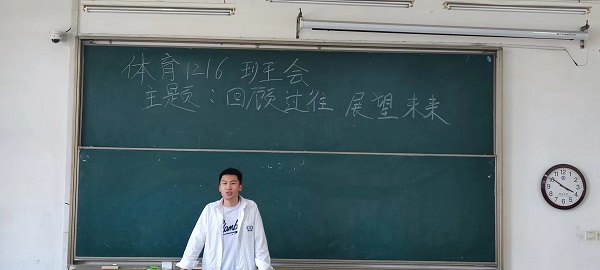 体育1216 班会
主题：回顾过往 展望未来